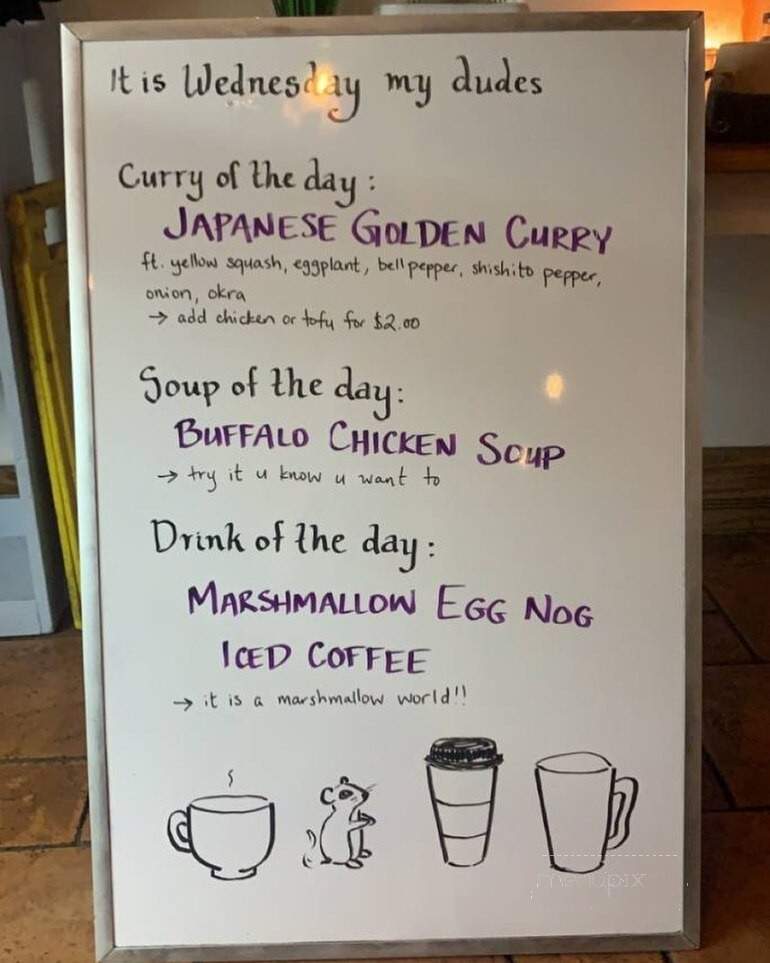 It is Wednesday my dudes
Curry of the day:
JAPANESE GOLDEN CURRY
ft. yellow squash, eggplant, bell pepper, shishito pepper,
onion, okra
→ add chicken or tofu for $2.00
Soup of the day:
BUFFALO CHICKEN SOUP
→ try it u know u want to
Drink of the day:
MARSHMALLOW EGG NOG
ICED COFFEE
→ it is a marshmallow world!!